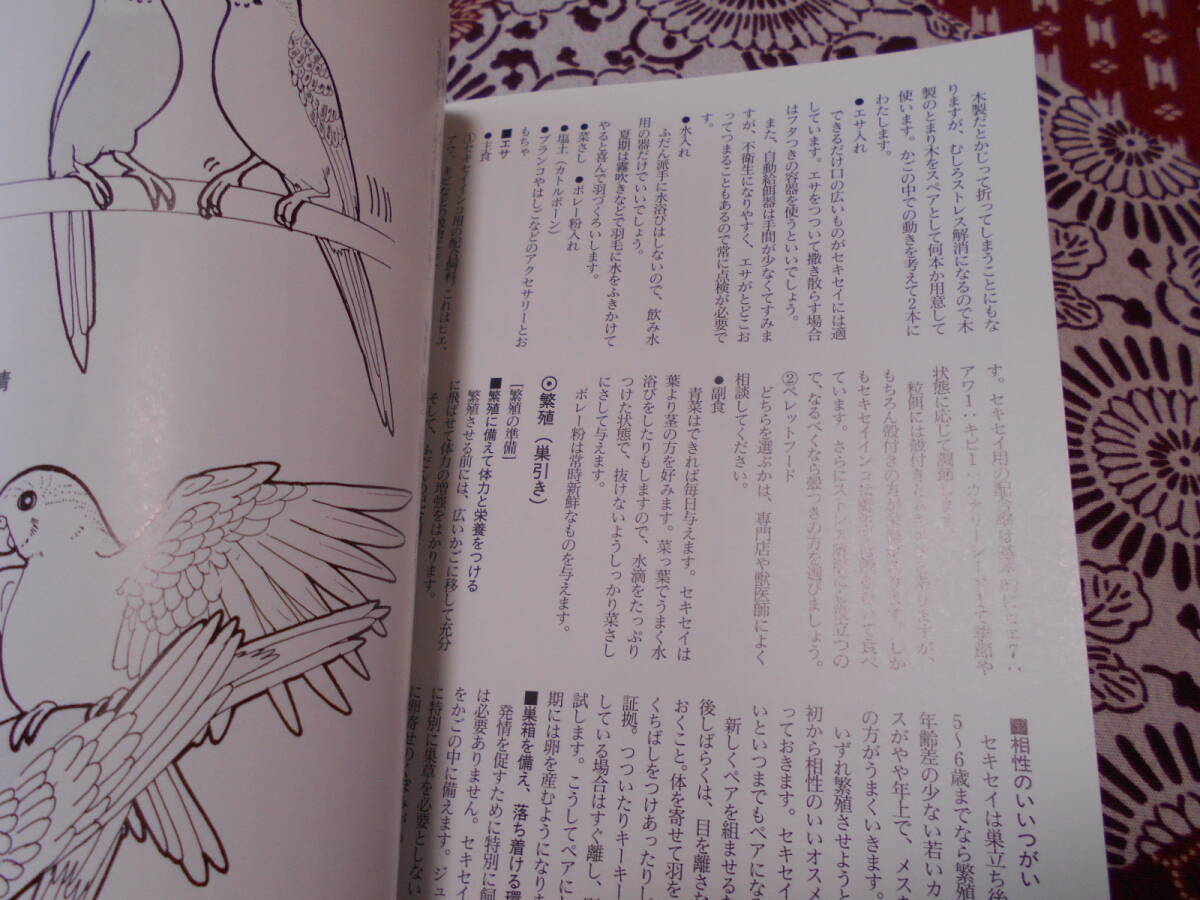 木製だとかじって折ってしまうことにもな
りますが、むしろストレス解消になるので木
製のとまり木をスペアとして何本か用意して
使います。かごの中での動きを考えて2本に
わたします。
●エサ入れ
できるだけ口の広いものがセキセイには適
しています。エサをつついて撒き散らす場合
はフタつきの容器を使うといいでしょう。
また、自動給餌器は手間が少なくてすみま
すが、不衛生になりやすく、エサがとどこお
ってつまることもあるので常に点検が必要で
す。
●水入れ
ふだん派手に水浴びはしないので、飲み水
用の器だけでいいでしょう。
夏期は霧吹きなどで羽毛に水をふきかけて
やると喜んで羽づくろいします。
●菜さし ●ボレー粉入れ
●塩土（カトルボーン）
●ブランコやはしごなどのアクセサリーとお
もちゃ
■エサ
●主食
①セキセイインコ用の配合飼料。これはヒエ、
す。セキセイ用の配合
アワ1：キビ1
状態に応じて調節します。
粒餌には殻付き
もちろん殻付きの方が
もセキセイインコ
ています。さらに
で、なるべくなら殻つきの方を選びましょう。
②ペレットフード
どちらを選ぶかは、専門店や獣医師によく
相談してください。
●副食
青菜はできれば毎日与えます。セキセイは
葉より茎の方を好みます。菜っ葉でうまく水
浴びをしたりもしますので、水滴をたっぷり
つけた状態で、抜けないようしっかり菜さし
にさして与えます。
ボレー粉は常時新鮮なものを与えます。
⦿繁殖（巣引き）
［繁殖の準備］
■繁殖に備えて体力と栄養をつける
繁殖させる前には、広いかごに移して充分
に飛ばせて体力の増強をはかります。
そして、ふだんの
■相性のいいつがい
セキセイは巣立ち後
5〜6歳までなら繁殖
年齢差の少ない若いカ
スがやや年上で、メス
の方がうまくいきます。
いずれ繁殖させようと
初から相性のいいオスメ
っておきます。セキセイ
いといつまでもペアにな
新しくペアを組ませるた
後しばらくは、目を離さな
おくこと。体を寄せて羽を
くちばしをつけあったりし
証拠。つついたりキーキー
している場合はすぐ離し、
試します。こうしてペアに
期には卵を産むようになりま
■巣箱を備え、落ち着ける環
発情を促すために特別に飼
は必要ありません。セキセイ
をかごの中に備えます。ジュ
に特別に巣草を必要としない
に卵寄せの